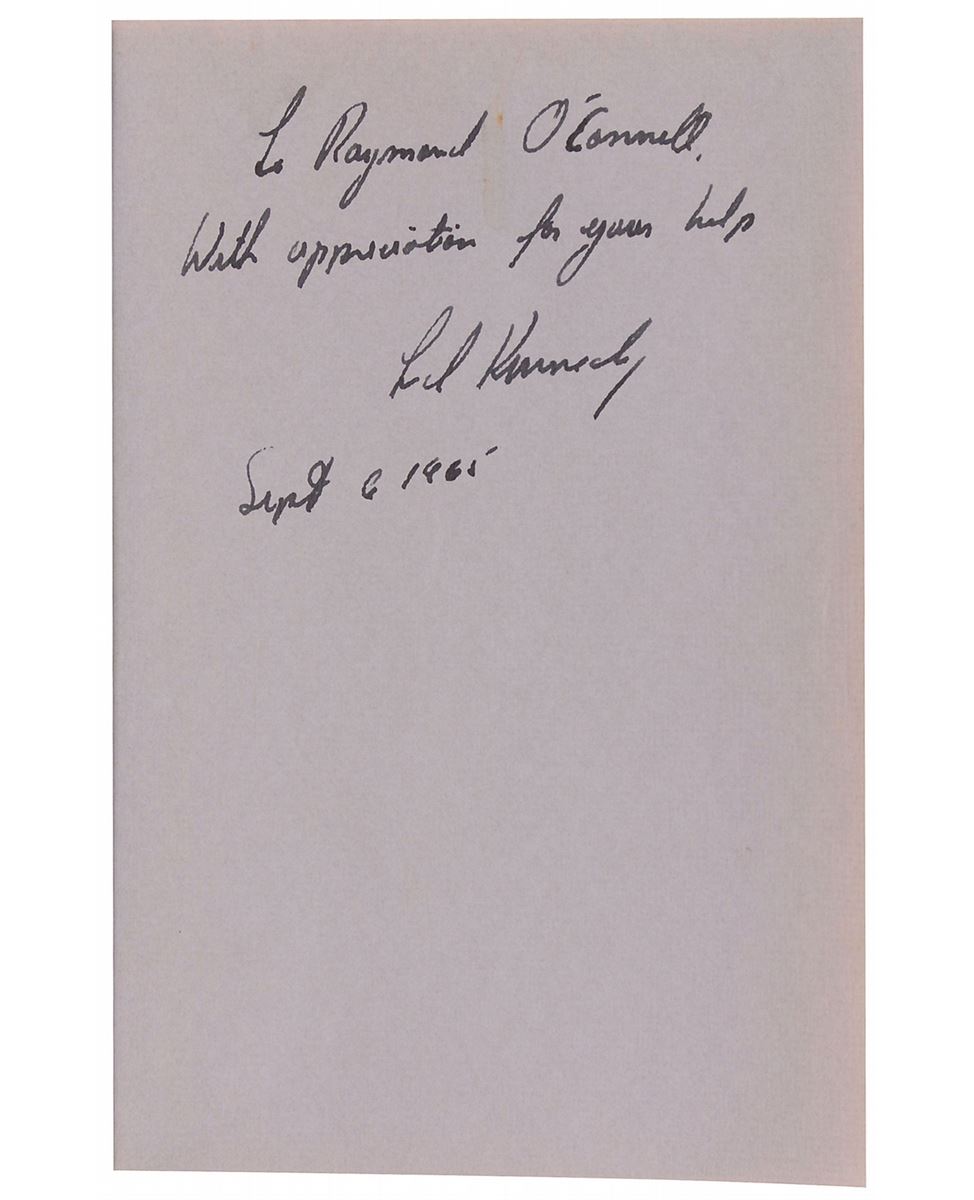 To Raymond O'Connell.
With appreciation for your help
Ted Kennedy
Sept 6 1965